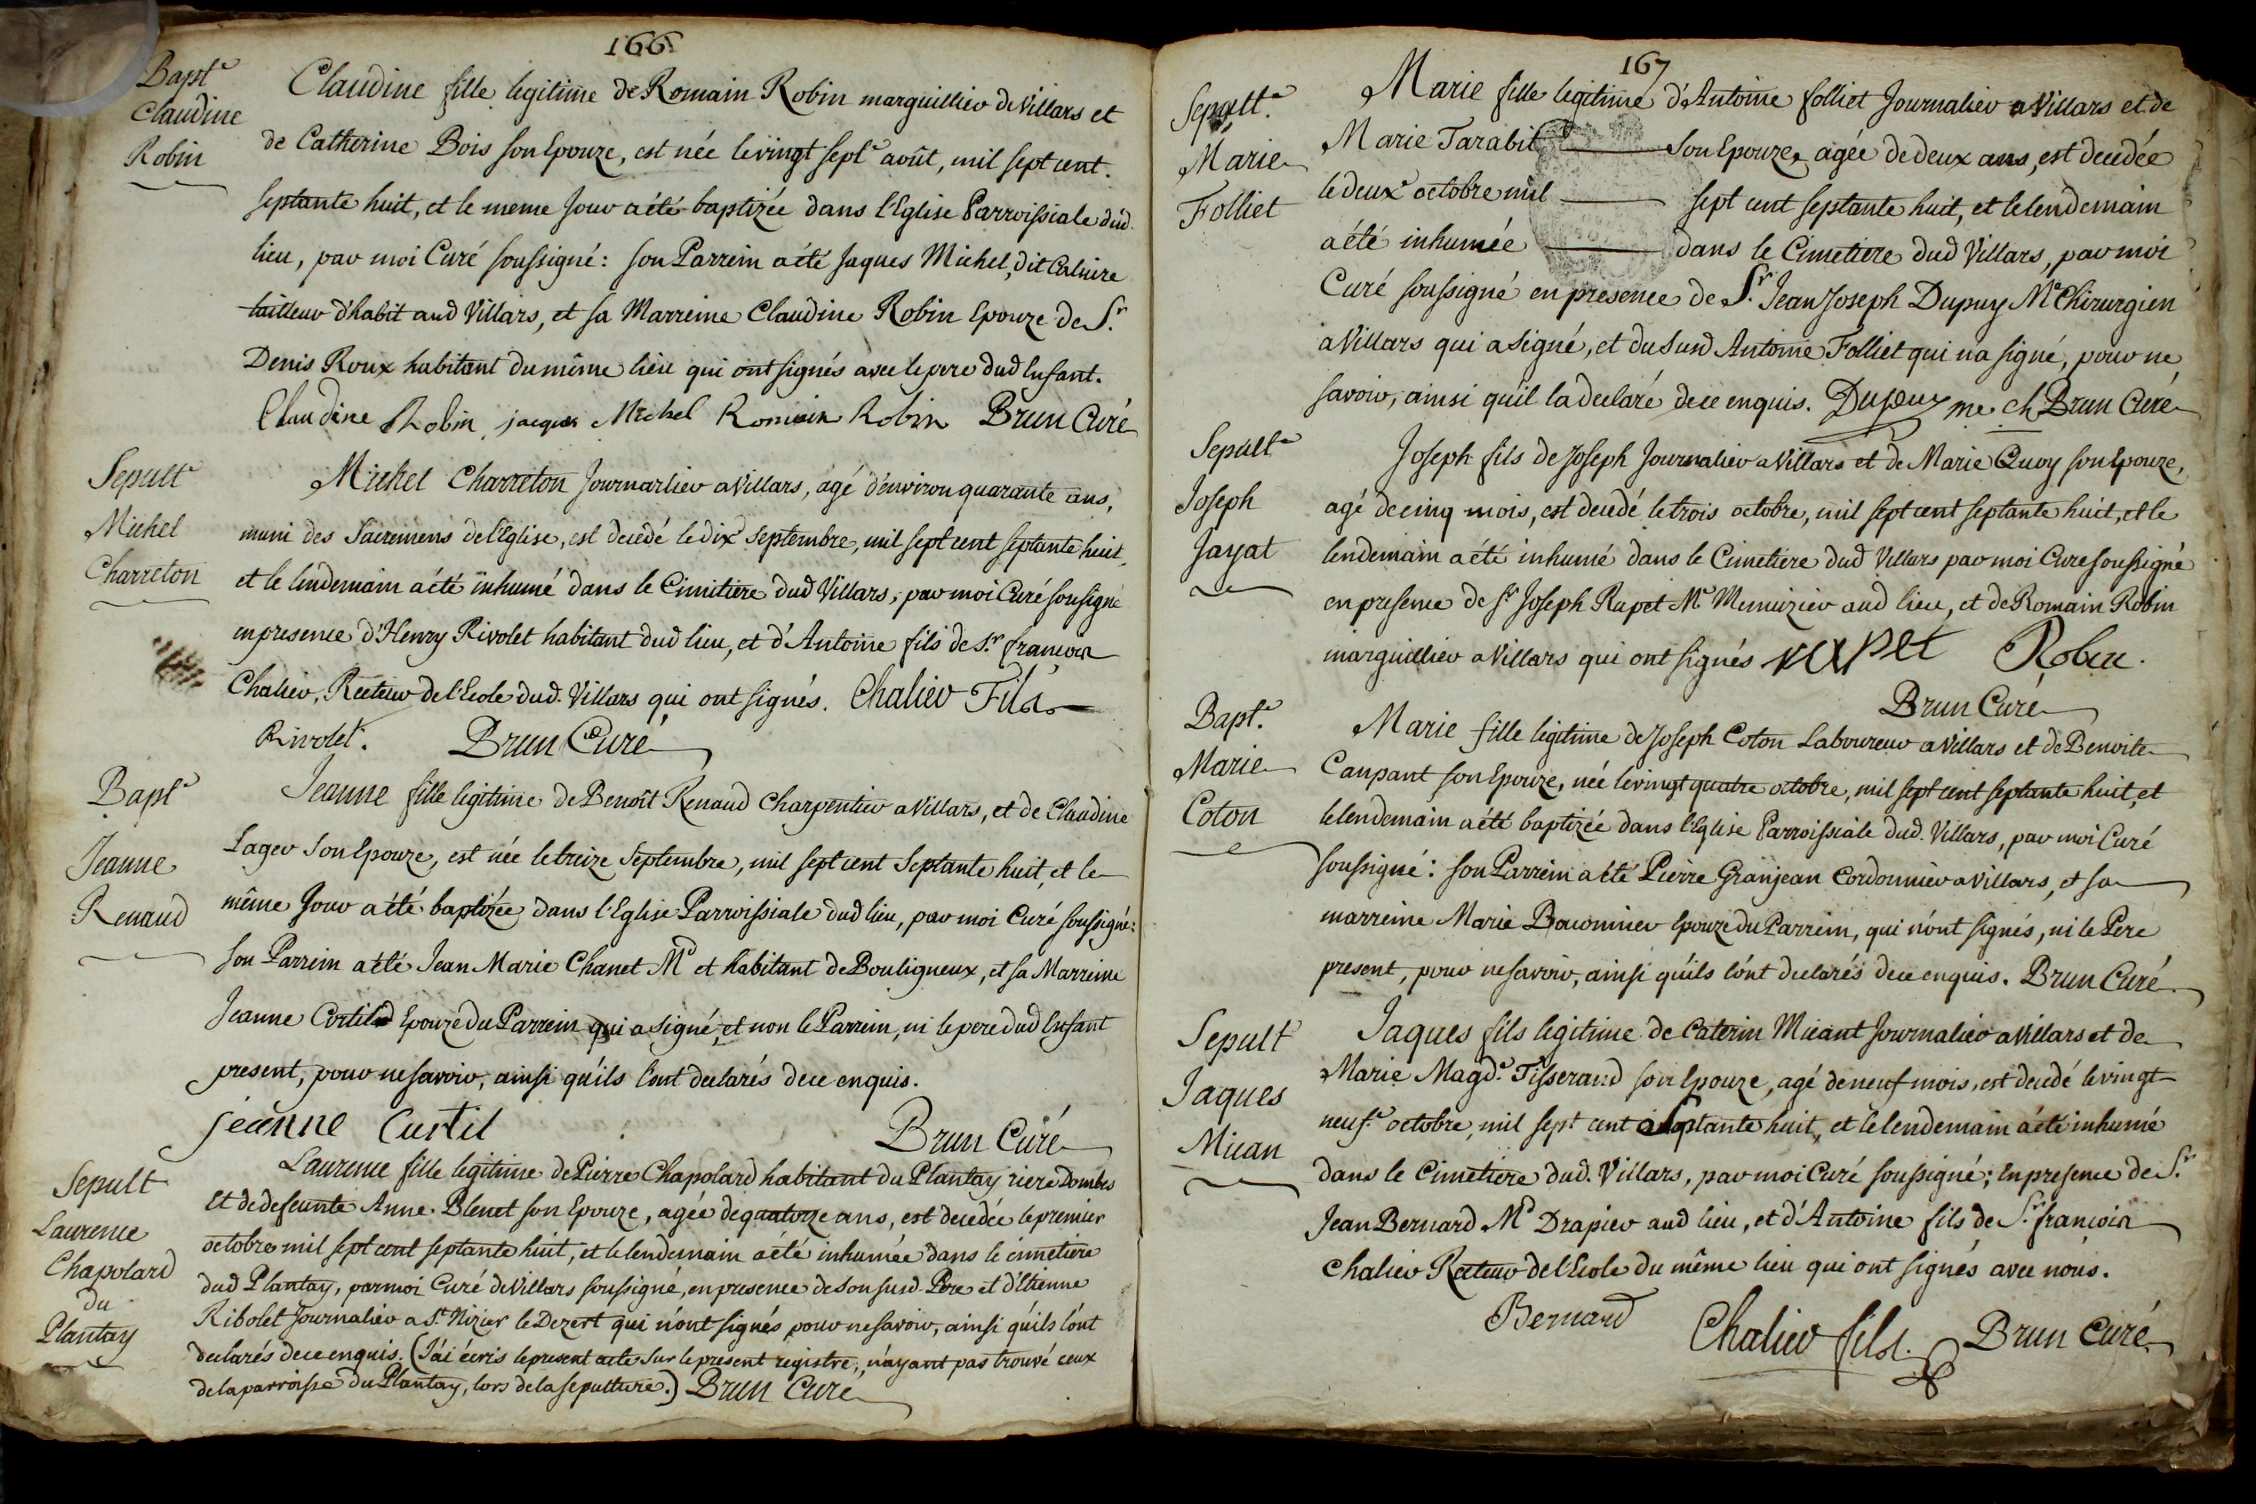 166
Bapt.e
Claudine
Robin
Claudine fille legitime de Romain Robin marguillier de Villars et
de Catherine Bois son Epouze, est née le vingt sept.e août, mil sept cent.
septante huit, et le meme Jour a été baptizée dans l'Eglise Parroissiale dud.
lieu, par moi Curé soussigné : son Parrein a été Jaques Michel, dit Caluire
tailleur d'habit aud Villars, et sa Marreine Claudine Robin Epouze de S.r
Denis Roux habitant du même lieu qui ont signés avec le pere dud Enfant.
Claudine Robin jacques Michel Romain Robin Brun Curé
Sepult.e
Michel
Charreton
Michel Charreton Journarlier a Villars, agé d'environ quarante ans,
muni des Sacremens de l'Eglise, est decedé le dix.e Septembre, mil sept cent septante huit,
et le lendemain a été inhumé dans le Cimitiere dud Villars, par moi Curé sousigné
en presence d'Henry Rivolet habitant dud lieu, et d'Antoine fils de S.r francois
Chalier, Recteur de l'Ecole dud. Villars qui ont signés. Chalier Fils
Rivolet. Brun Curé
Bapt.e
Jeanne
Renaud
Jeanne fille legitime de Benoît Renaud Charpentier a Villars, et de Claudine
Lager Son Epouze, est née le treize Septembre, mil sept cent Septante huit, et le
même Jour a été baptizée dans l'Eglise Parroissiale dud lieu, par moi Curé soussigné:
son Parrein a été Jean Marie Chanet M.d et habitant de Bouligneux, et sa Marreine
Jeanne Epouze du Parrein qui a signé, et non le Parrein, ni le pere dud Enfant
present, pour ne savoir, ainsi qu'ils l'ont declarés de ce enquis.
jeanne Curtil Brun Curé
Sepult
Laurence
Chapolard
du
Plantay
Laurence fille legitime de Pierre Chapolard habitant du Plantay riere Dombes
Et de defeunte Anne Blenet son Epouze, agée de quatorze ans, est decedée le premier
octobre mil sept cent septante huit, et le lendemain a été inhumée dans le cimetiere
dud Plantay, par moi Curé de Villars soussigné, en presence de son susd Pere et d'Etienne
Ribolet Journalier a S.t Nizier le Dezert qui n'ont signés pour ne savoir, ainsi qu'ils l'ont
declarés de ce enquis. (J'ai écris le present acte sur le present registre, n'ayant pas trouvé ceux
de la parroisse du Plantay, lors de la sepulture.) Brun Curé
167
Sepult.e
Marie
Folliet
Marie fille legitime d'Antoine folliet Journalier a Villars et de
Marie Tarabit son Epouze, agée de deux ans, est decedée
le deux.e octobre mil sept cent septante huit, et le lendemain
a été inhumée dans le Cimetiere dud Villars, par moi
Curé soussigné en presence de S.r Jean Joseph Dupuy M.e Chirurgien
a Villars qui a signé, et du susd Antoine Folliet qui na signé, pour ne
savoir, ainsi qu'il la declaré de ce enquis. Dupuy me ch Brun Curé
Sepult.e
Joseph
Jayat
Joseph fils de Joseph Journalier a Villars et de Marie Quoy son Epouze,
agé de cinq mois, est decedé le trois octobre, mil sept cent septante huit, et le
lendemain a été inhumé dans le Cimetiere dud Villars par moi Curé soussigné
en presence de S.r Joseph Rapet M.e Menuizier aud lieu, et de Romain Robin
marguillier a Villars qui ont signés rapet Robin.
Brun Curé
Bapt.e
Marie
Coton
Marie fille legitime de Joseph Coton Laboureur a Villars et de Benoite
Caupant son Epouze, née le vingt quatre octobre, mil sept cent septante huit, et
le lendemain a été baptizée dans l'Eglise Parroissiale dud. Villars, par moi Curé
soussigné : son Parrein a été Pierre Granjean Cordonnier a Villars, et sa
marreine Marie Epouze du Parrein, qui n'ont signés, ni le Pere
present, pour ne savoir, ainsi qu'ils l'ont declarés de ce enquis. Brun Curé
Sepult
Jaques
Mican
Jaques fils legitime de Caterin Micant Journalier a Villars et de
Marie Magd.e Tisserand son Epouze, agé de neuf mois, est decedé le vingt
neuf.e octobre, mil sept cent Septante huit, et le lendemain a été inhumé
dans le Cimetiere dud. Villars, par moi Curé soussigné ; En presence de S.r
Jean Bernard M.d Drapier aud lieu, et d'Antoine fils de S.r francois
Chalier Recteur de l'Ecole du même lieu qui ont signés avec nous.
Bernard Chalier fils. Brun Curé